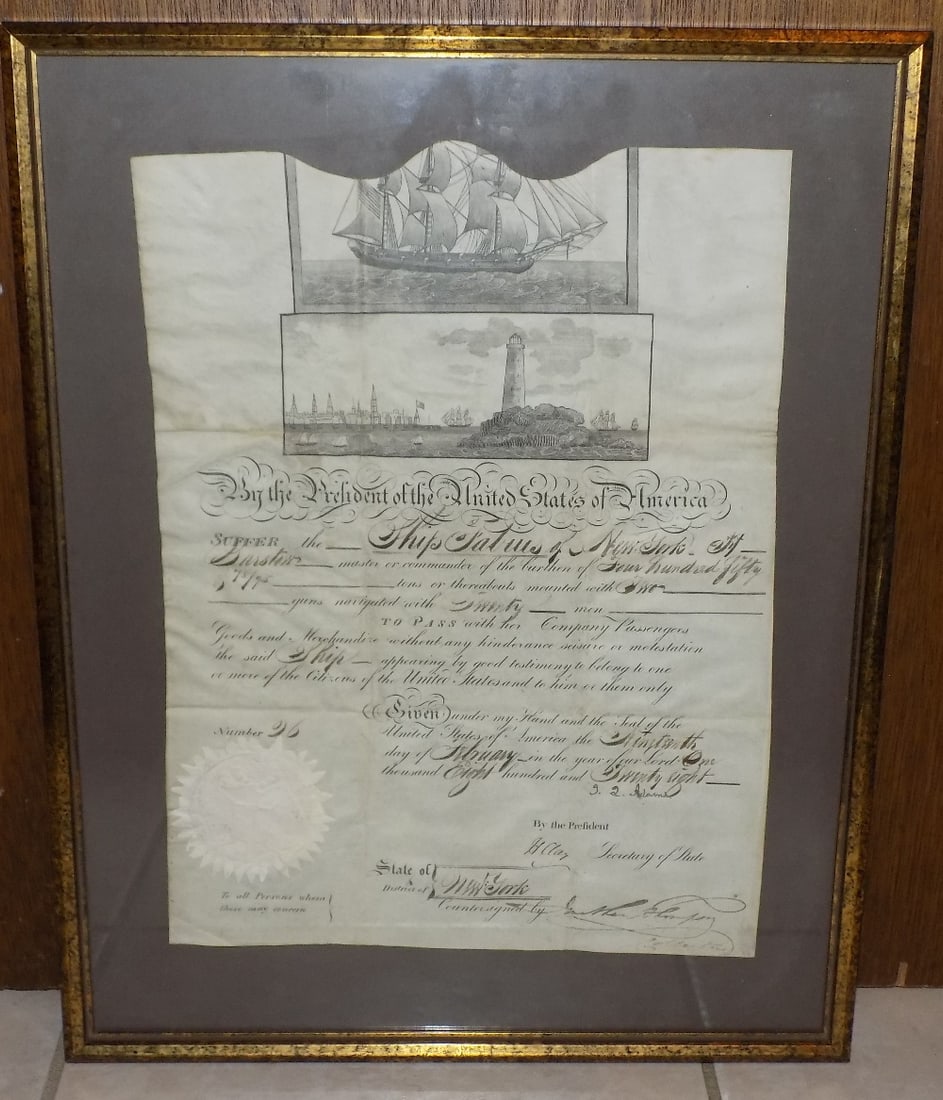 By the President of the United States of America
SUFFER the Ship of New York
master or commander of the burthen of Four hundred fifty
tons or thereabouts mounted with Two
guns navigated with Twenty men
TO PASS with her Company Passengers
Goods and Merchandize without any hinderance seisure or molestation
the said Ship appearing by good testimony to belong to one
or more of the Citizens of the United States and to him or them only
Given under my Hand and the Seal of the
Number 26
United States of America the
day of February in the year of our Lord One
thousand Eight hundred and Twenty eight
J. Q. Adams
By the President
H Clay Secretary of State
State of
District of New York
Countersigned by
To all Persons whom
these may concern